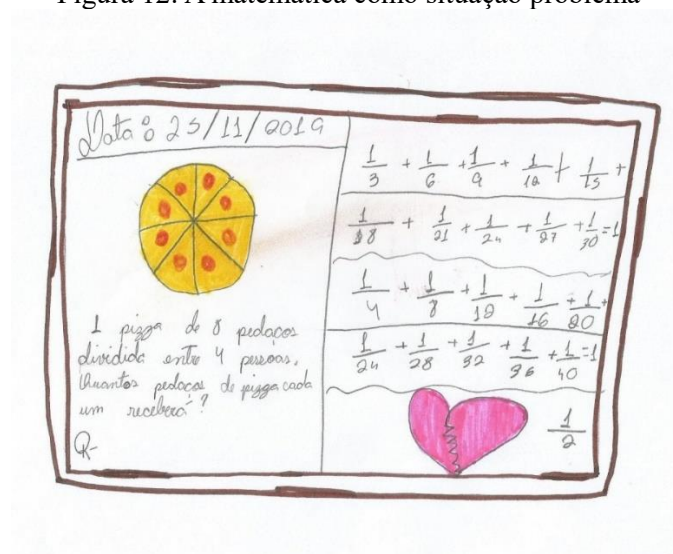 Figura 12: A matemática como situação problema
Data: 25/11/2019
1 pizza de 8 pedaços
dividida entre 4 pessoas.
Quantos pedaços de pizza cada
um receberá?
R-
1/3 + 1/6 + 1/9 + 1/12 + 1/15 +
1/18 + 1/21 + 1/24 + 1/27 + 1/30 = 1
1/4 + 1/8 + 1/12 + 1/16 + 1/20 +
1/24 + 1/28 + 1/32 + 1/36 + 1/40 = 1
1/2